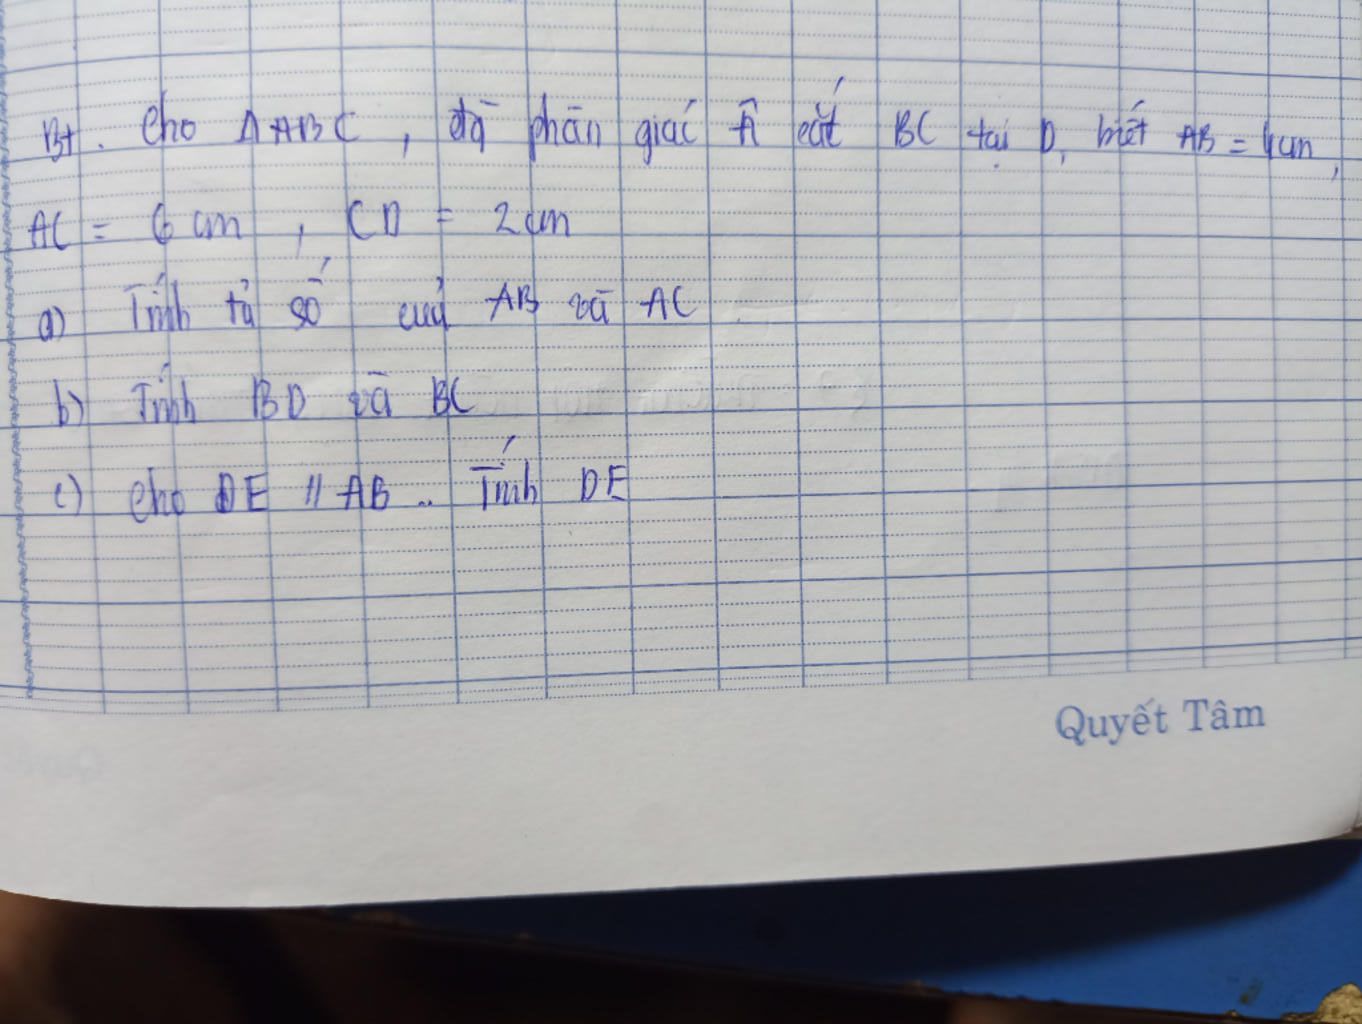 Bt. Cho ΔABC, đg phân giác Â cắt BC tại D, biết AB = 4cm,
AC = 6 cm, CD = 2cm
a) Tính tỉ số của AB và AC
b) Tính BD và BC
c) Cho DE // AB .. Tính DE
Quyết Tâm